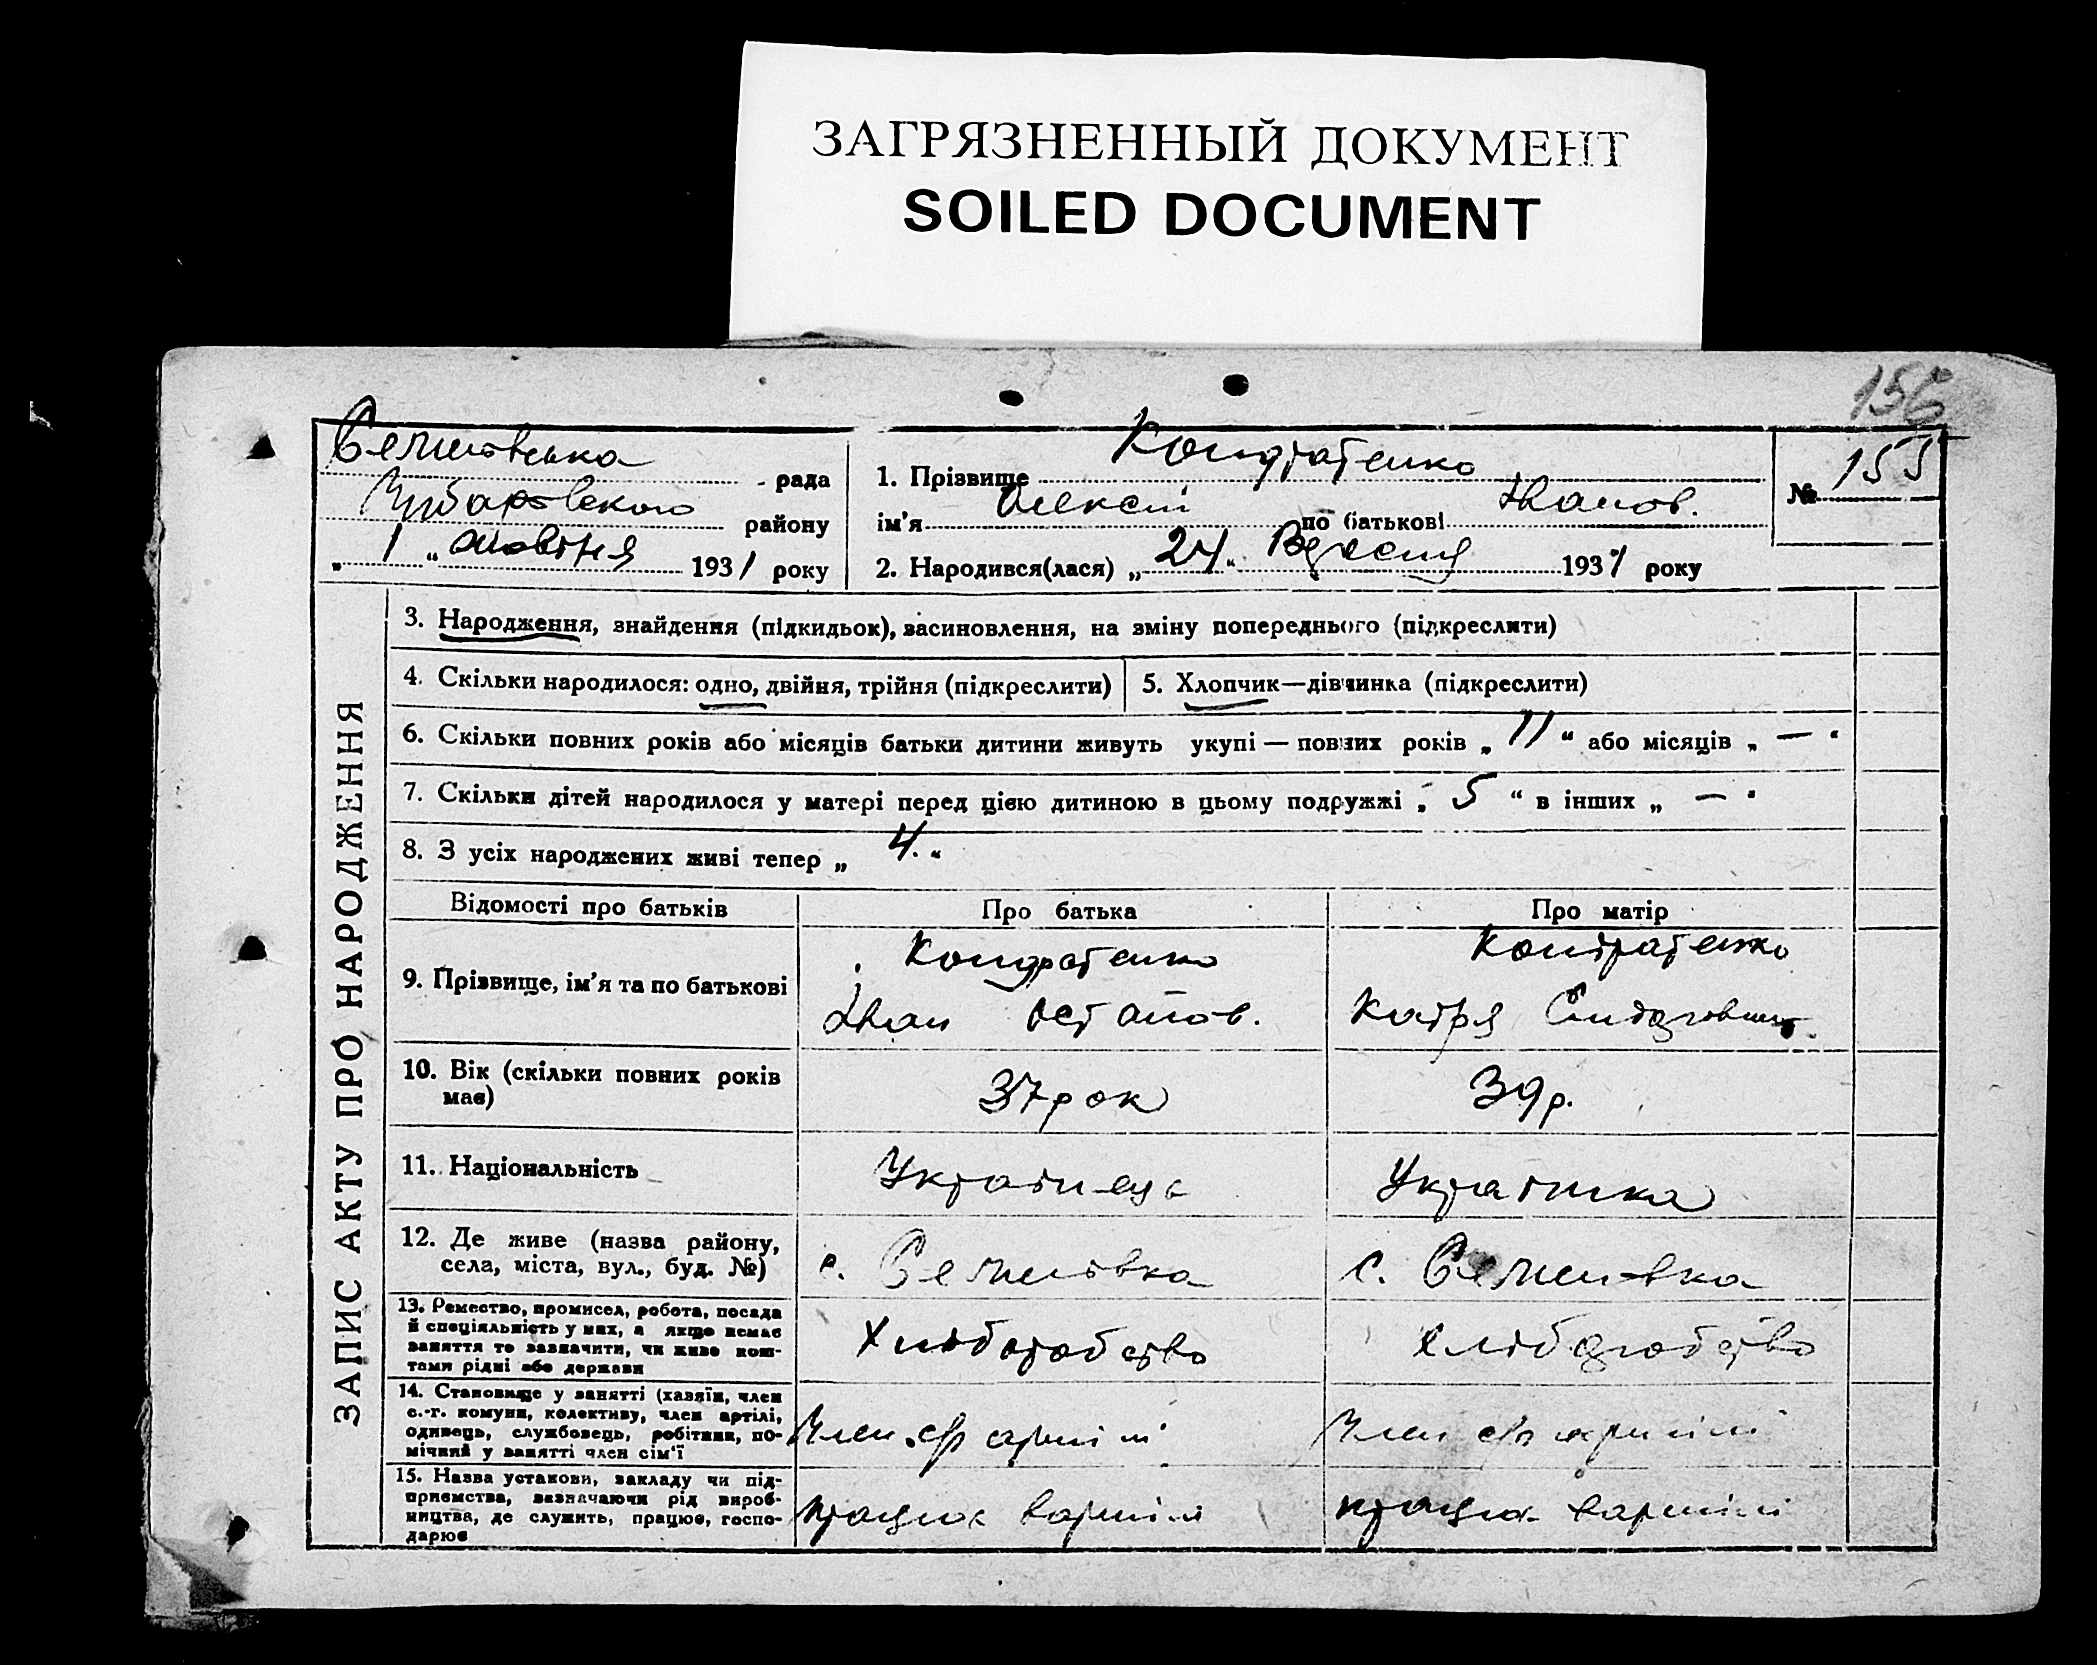 ЗАГРЯЗНЕННЫЙ ДОКУМЕНТ
SOILED DOCUMENT
156
Семенівська рада
району
„ 1 " жовтня 1931 року
1. Прізвище Кондратенко
ім'я Олексій по батькові Іванов.
2. Народився(лася) „ 24 " Вересня 1931 року
№ 155
ЗАПИС АКТУ ПРО НАРОДЖЕННЯ
3. Народження, знайдення (підкидьок), засиновлення, на зміну попереднього (підкреслити)
4. Скільки народилося: одно, двійня, трійня (підкреслити)
5. Хлопчик—дівчинка (підкреслити)
6. Скільки повних років або місяців батьки дитини живуть укупі — повних років „ 11 " або місяців „ — "
7. Скільки дітей народилося у матері перед цією дитиною в цьому подружжі „ 5 " в інших „ — "
8. З усіх народжених живі тепер „ 4. "
Відомості про батьків
Про батька
Про матір
9. Прізвище, ім'я та по батькові
Кондратенко
Іван Остапов.
Кондратенко
Катря
10. Вік (скільки повних років
має)
37 рок
39 р.
11. Національність
Українець
Українка
12. Де живе (назва району,
села, міста, вул., буд. №)
с. Семенівка
с. Семенівка
13. Ремество, промисел, робота, посада
й спеціяльність у них, а якщо немає
заняття то зазначити, чи живе кош-
тами рідні або держави
Хліборобство
Хліборобство
14. Становище у занятті (хазяїн, член
с.-г. комуни, колективу, член артілі,
одинець, службовець, робітник, по-
мічний у занятті член сім'ї
Член с/г артілі
Член с/г артілі
15. Назва установи, закладу чи під-
приємства, зазначаючи рід вироб-
ництва, де служить, працює, госпо-
дарює
працює в артілі
працює в артілі